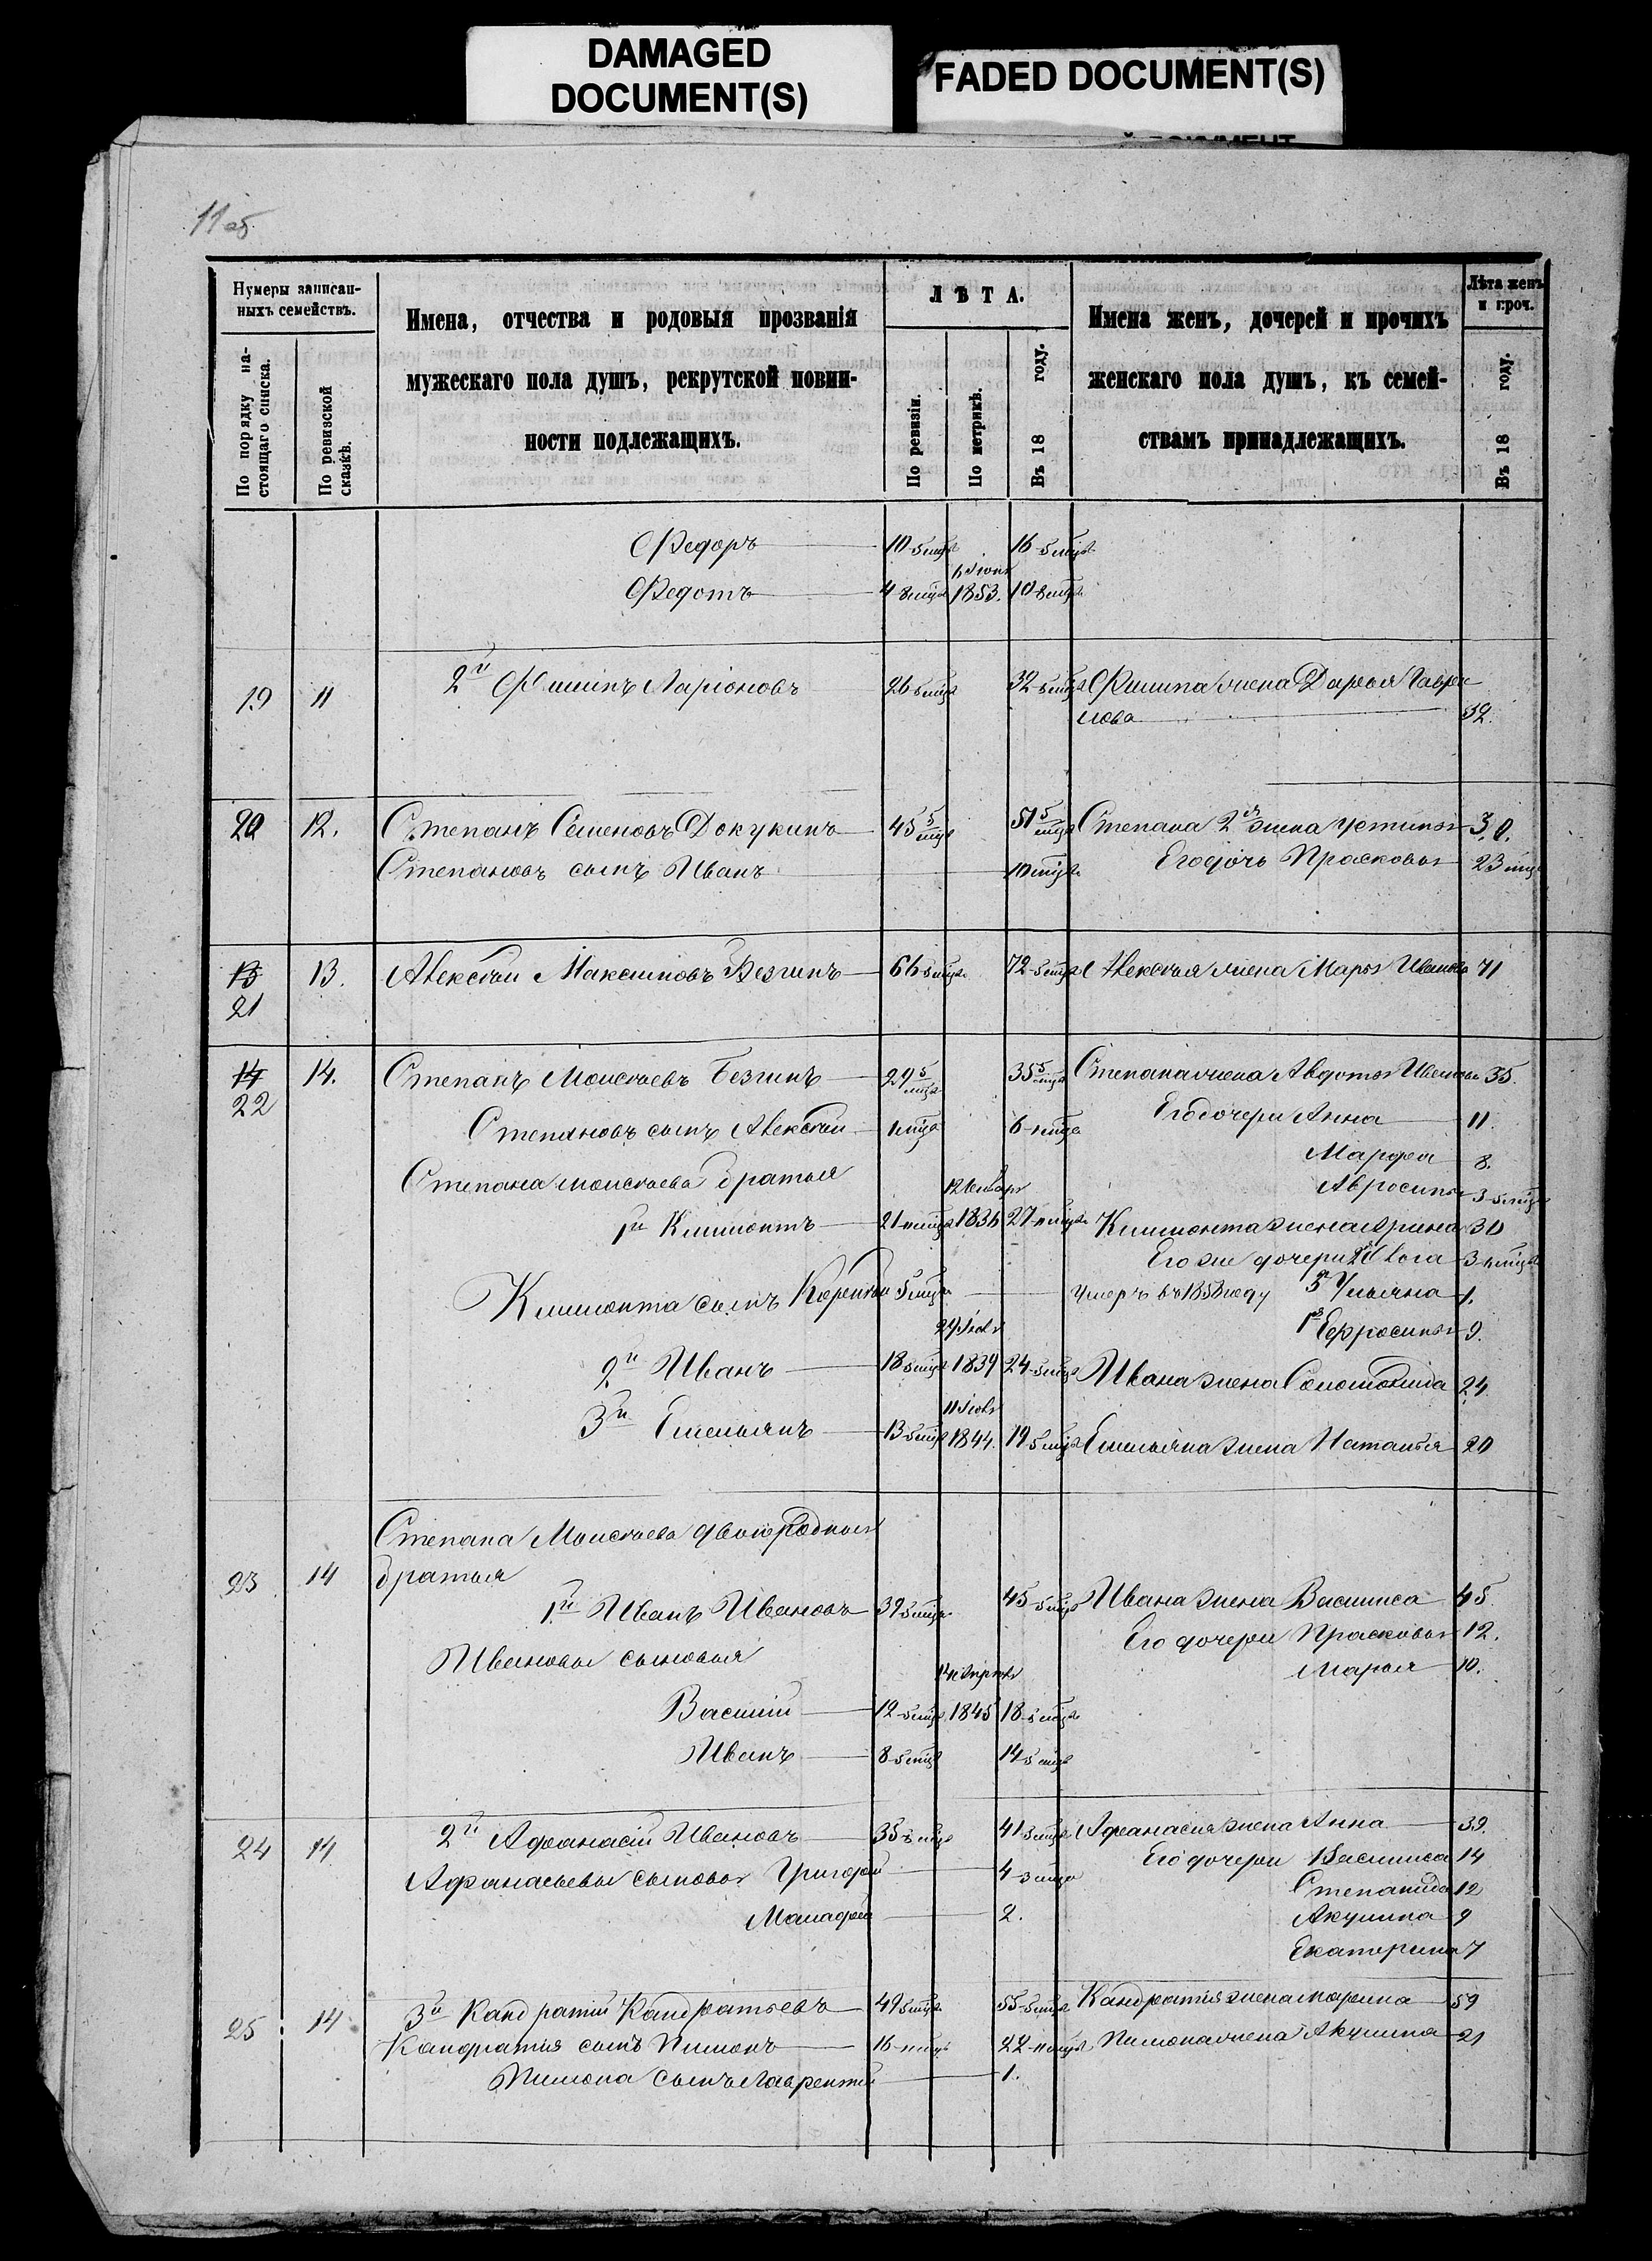 DAMAGED
DOCUMENT(S)
FADED DOCUMENT(S)
11об
Нумеры записан-
ныхъ семействъ.
По порядку на-
стоящаго списка.
По ревизской
сказкѣ.
Имена, отчества и родовыя прозванія
мужескаго пола душъ, рекрутской повин-
ности подлежащихъ.
ЛѢТА.
По ревизіи.
По метрикѣ.
Въ 18 году.
Имена женъ, дочерей и прочихъ
женскаго пола душъ, къ семей-
ствамъ принадлежащихъ.
Лѣта женъ
и проч.
Въ 18 году.
Ѳедоръ 10 5 мцв 16 5 мцв
Ѳедотъ 4 8 мцв 1853. 10 8 мцв
19 11 2й Филипъ Ларіоновъ 26 5 мцв 32 5 мцв Филипа жена Дарья Гаври
лова 32.
20 12. Степанъ Семеновъ Докукинъ 45 5 мцв 51 5 мцв Степана 2я жена Устинья 30.
Степановъ сынъ Иванъ 10 мцв Его дочь Прасковья 2 3 мц
13 13. Алексѣй Максимовъ Безгинъ 66 5 мцв 72 5 мцв Алексѣя жена Марья Иванова 71
21
14 14. Степанъ Моисѣевъ Безгинъ 29 5 мцв 35 5 мцв Степана жена Авдотья Иванова 35.
22
Степановъ сынъ Алексѣй 6 Его дочери Анна 11.
Марфа 8.
Степана Моисѣева братья Авросинья 3 5 мцв
1й Климонтъ 21 1836 27 Климонта жена Арина 30
Его же дочери 3
Климонта сынъ 5 мцв умеръ въ 1858 году 3я Ульяна 1.
1я Ефросинья 9.
2й Иванъ 18 5 мцв 1839 24 5 мцв Ивана жена Соломонида 24.
11 Іюля
3й Емельянъ 13 5 мцв 1844. 19 5 мцв Емельяна жена Наталья 20
Степана Моисѣева двоюродныя
23 14 братья
1й Иванъ Ивановъ 39 5 мцв 45 5 мцв Ивана жена Василиса 45.
Его дочери Прасковья 12.
Ивановы сыновья Марья 10.
Василій 12 5 мцв 1845 18 5 мцв
Иванъ 8 5 мцв 14 5 мцв
24 14 2й Афанасій Ивановъ 35 5 мцв 41 5 мцв Афанасия жена Анна 39.
Афанасьевы сыновья Григорій 4 3 мцв Его дочери Василиса 14
Степанида 12
Малафей 2. Акулина 9
Екатерина 7
25 14 3й Кандратій Кандратьевъ 49 5 мцв 55 5 мцв Кандратія жена Марина 59
Кандратія сынъ Пимонъ 16 22 Пимона жена Акулина 21
Пимона сынъ Лаврентій 1.